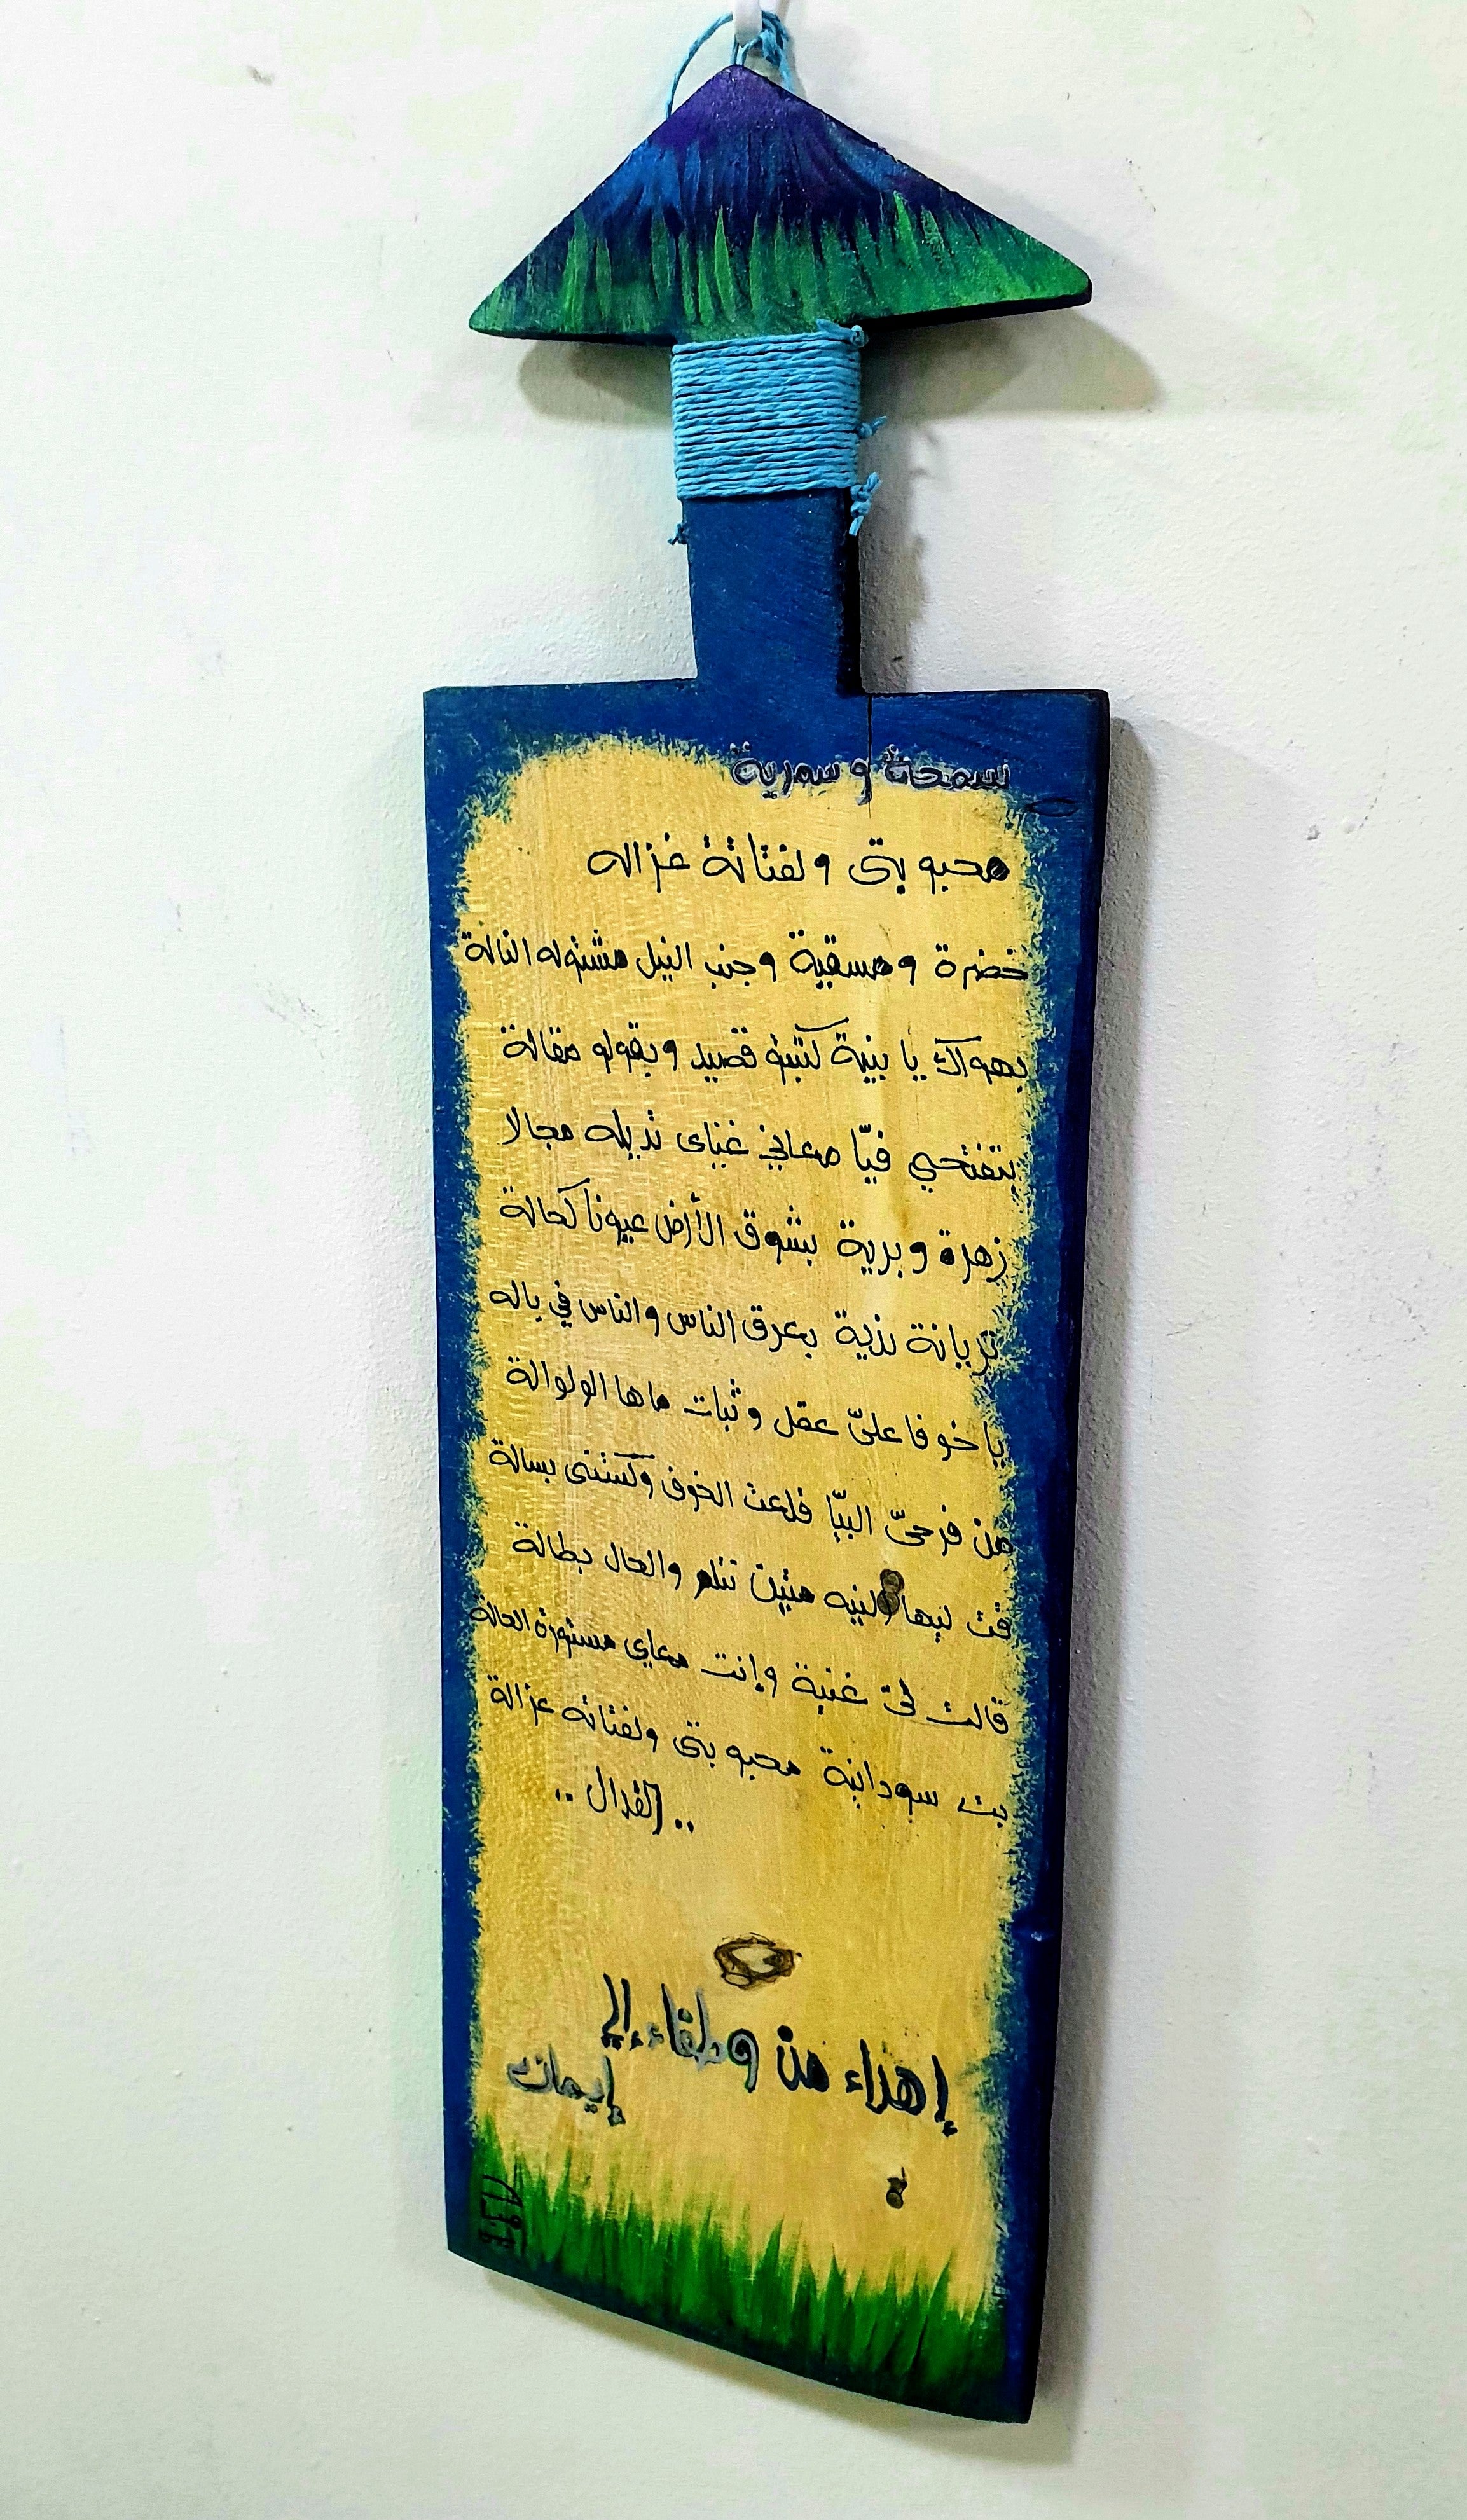 سمحة و سمرية
محبوبتى ولفتاتة غزاله
خضرة ومسقية وجنب النيل مشتوله النالة
بهواك يا بنية كتبتة قصيد وبقوله مقالة
بتفتحي فيّا معاني غناى تديله مجالا
زهرة وبرية بشوق الأرض عيونا كحالة
تربانة نزية بعرق الناس والناس في باله
يا خوفا عليّ عقل وثبات ماها الولوالة
من فرحىّ البيّا قلعت الخوف وكستنى بسالة
قت ليها النيه متين نتلم والحال بطالة
قالت لى غنية وإنت معاي مستورة الحالة
بت سودانية محبوبتى ولفتاته غزالة
.. القدال ..
إهداء من ولفاء إلى
إيمان